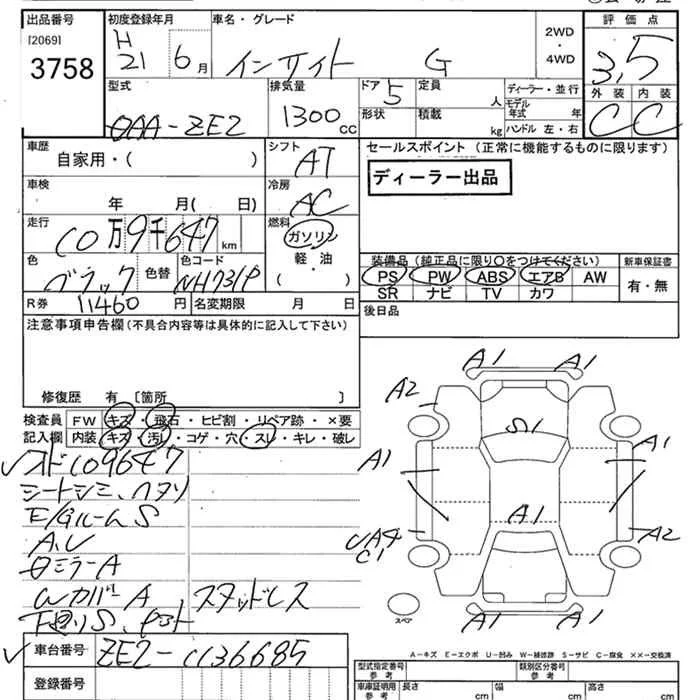 出品番号 初度登録年月 車名・グレード 2WD・4WD 評価点
[2069] 3758 H21 6月 インサイト G 3.5
型式 排気量 ドア 5 定員 人 ディーラー・並行 外装 内装
DAA-ZE2 1300cc 形状 積載 kg モデル年式 年 C C
ハンドル 左・右
車歴 シフト セールスポイント (正常に機能するものに限ります)
自家用・( ) AT ディーラー出品
車検 冷房
年 月( 日) AC
走行 燃料
10万9千647km ガソリン
軽・油
( )
色 色替 色コード
ブラック NH731P
装備品 (純正品に限り○をつけてください) 新車保証書
PS PW ABS エアB AW 有・無
SR ナビ TV カワ
R券 11460円 名変期限 月 日 後日品
注意事項申告欄(不具合内容等は具体的に記入して下さい)
修復歴 有 [箇所 ]
検査員 FW キズ・飛石・ヒビ割・リペア跡・×要
記入欄 内装 キズ・汚レ・コゲ・穴・スレ・キレ・破レ
オド109647
シートシミ、ヘタリ
E/GルームS
A.V
ミラーA
WカバーA スタッドレス
下廻りS、
車台番号 ZE2-1136685
登録番号
A1 A1
A2
S1
A1 A1
A1
A4 A2
C1
スペア A1 A1
A-キズ E-エクボ U-凹み W-補修跡 S-サビ C-腐食 ××-交換済
型式指定番号 参考 類別区分番号 参考
車庫証明用 参考 長さ cm 幅 cm 高さ cm